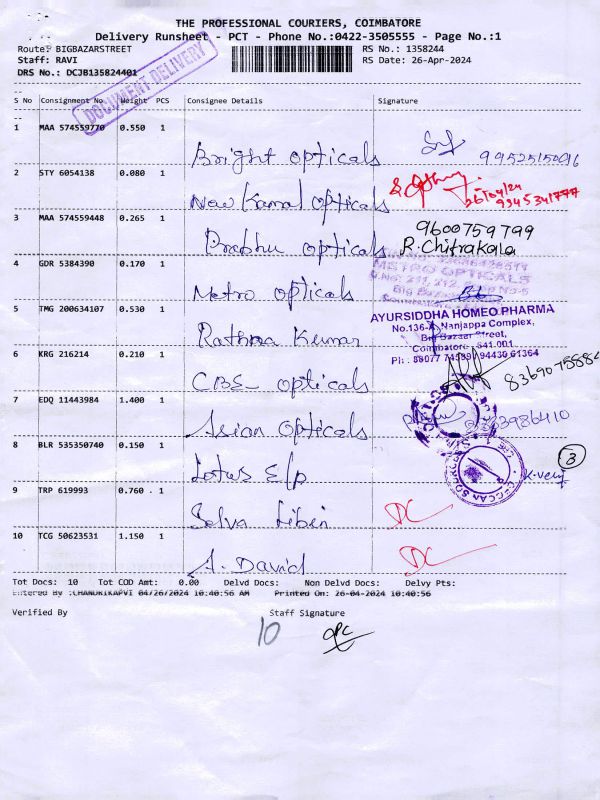 THE PROFESSIONAL COURIERS, COIMBATORE
Delivery Runsheet - PCT - Phone No.:0422-3505555 - Page No.:1
Route: BIGBAZARSTREET
RS No.: 1358244
Staff: RAVI
RS Date: 26-Apr-2024
DRS No.: DCJB135824401
DOCUMENT DELIVERY
S No Consignment No Weight PCS Consignee Details Signature
1 MAA 574559770 0.550 1 Bright opticals
2 STY 6054138 0.080 1 New Kamal opticals 26/04/24
3 MAA 574559448 0.265 1 Prabhu opticals 9600759799
R.Chitrakala
4 GDR 5384390 0.170 1 Metro opticals
METRO OPTICALS
5 TMG 200634107 0.530 1 Rathna Kumar
AYURSIDDHA HOMEO PHARMA
No.136-A, Nanjappa Complex,
Big Bazaar Street,
Coimbatore - 641 001
6 KRG 216214 0.210 1 CBE opticals
7 EDQ 11443984 1.400 1 Asian Opticals
8 BLR 535350740 0.150 1 Lotus E/p
3
9 TRP 619993 0.760 1 Selva DC
10 TCG 50623531 1.150 1 A. David DC
Tot Docs: 10 Tot COD Amt: 0.00 Delvd Docs: Non Delvd Docs: Delvy Pts:
04/26/2024 10:40:56 AM Printed On: 26-04-2024 10:40:56
Verified By Staff Signature
10